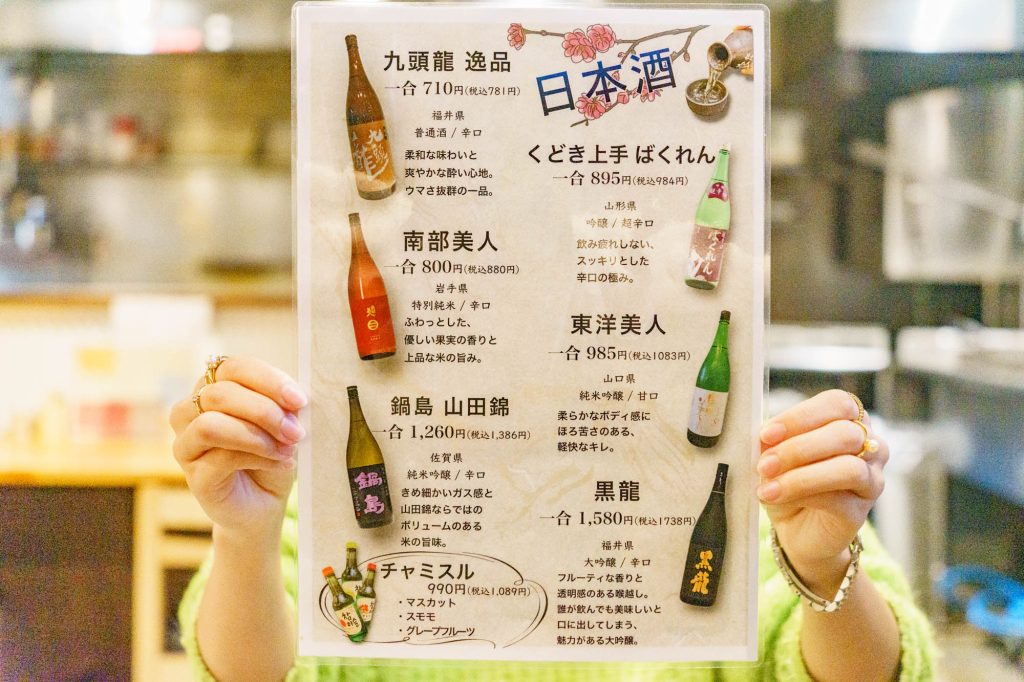 日本酒
九頭龍 逸品
一合 710円(税込781円)
福井県
普通酒 / 辛口
柔和な味わいと
爽やかな酔い心地。
ウマさ抜群の一品。
南部美人
一合 800円(税込880円)
岩手県
特別純米 / 辛口
ふわっとした、
優しい果実の香りと
上品な米の旨み。
鍋島 山田錦
一合 1,260円(税込1,386円)
佐賀県
純米吟醸 / 辛口
きめ細かいガス感と
山田錦ならではの
ボリュームのある
米の旨味。
鍋島
チャミスル
990円(税込1,089円)
・マスカット
・スモモ
・グレープフルーツ
くどき上手 ばくれん
一合 895円(税込984円)
山形県
吟醸 / 超辛口
飲み疲れしない、
スッキリとした
辛口の極み。
ばくれん
東洋美人
一合 985円(税込1083円)
山口県
純米吟醸 / 甘口
柔らかなボディ感に
ほろ苦さのある、
軽快なキレ。
黒龍
一合 1,580円(税込1738円)
福井県
大吟醸 / 辛口
フルーティな香りと
透明感のある喉越し。
誰が飲んでも美味しいと
口に出してしまう、
魅力がある大吟醸。
黒龍